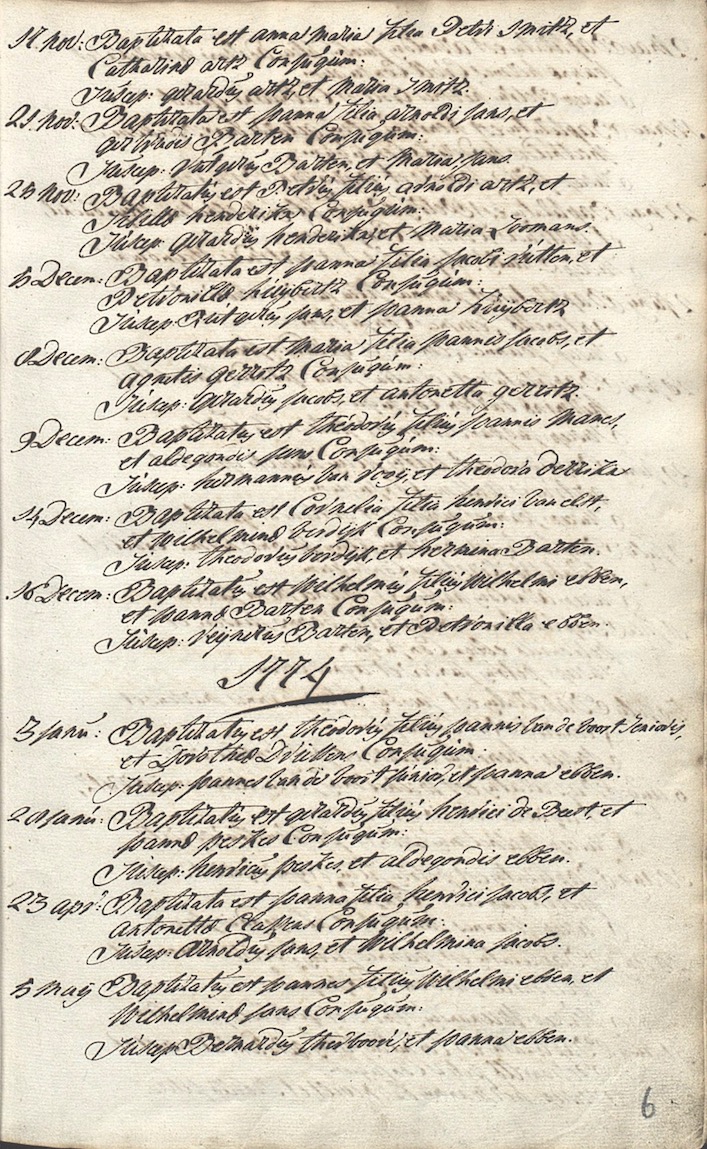 17. nov: Baptizata est anna maria filia Petri Smitz, et
Catharinæ artz Conjugum:
Suscep: gerardus artz, et maria Smitz.
21. nov: Baptizata est Joanna filia arnoldi Jans, et
gertrudis Barten Conjugum:
Suscep: Rutgerus Barten, et Maria Jans.
23 nov: Baptizatus est Petrus filius arnoldi artz, et
Sibillæ henderikx Conjugum:
Suscep: gerardus henderikx, et Maria
5 Decem: Baptizata est Joanna filia Jacobi rutten, et
Petronillæ huijbertz Conjugum:
Suscep: Rutgerus Jans, et Joanna huijbertz
8 Decem: Baptizata est Maria filia Joannis Jacobs, et
agnetis gerrotz Conjugum:
Suscep: gerardus Jacobs, et antonetta gerrotz.
9 Decem: Baptizatus est theodorus filius Joannis Manes,
et aldegondis Jans Conjugum:
Suscep: hermannus van et theodora Derrikx
14 Decem: Baptizata est Cornelia filia henrici van elst,
et Wilhelminæ verdijk Conjugum:
Suscep: theodorus verdijk, et hermina Barten.
16 Decem: Baptizatus est Wilhelmus filius Wilhelmi ebben,
et Joannæ Barten Conjugum:
Suscep: reijnerus Barten, et Petronilla ebben.
1774
3 Janu: Baptizatus est theodorus filius Joannis van de voort Senioris,
et Dorotheæ Driessens Conjugum:
Suscep: Joannes van de voort Junior, et Joanna ebben.
20 Janu: Baptizatus est gerardus filius henrici de Best, et
Joannæ peskes Conjugum:
Suscep: henricus peskes, et aldegondis ebben.
23 apr: Baptizata est Joanna filia henrici Jacobs, et
antonettæ Classens Conjugum:
Suscep: arnoldus Jans, et Wilhelmina Jacobs.
5 maij Baptizatus est Joannes filius Wilhelmi ebben, et
Wilhelminæ Jans Conjugum:
Suscep: Bernardus et Joanna ebben.
6